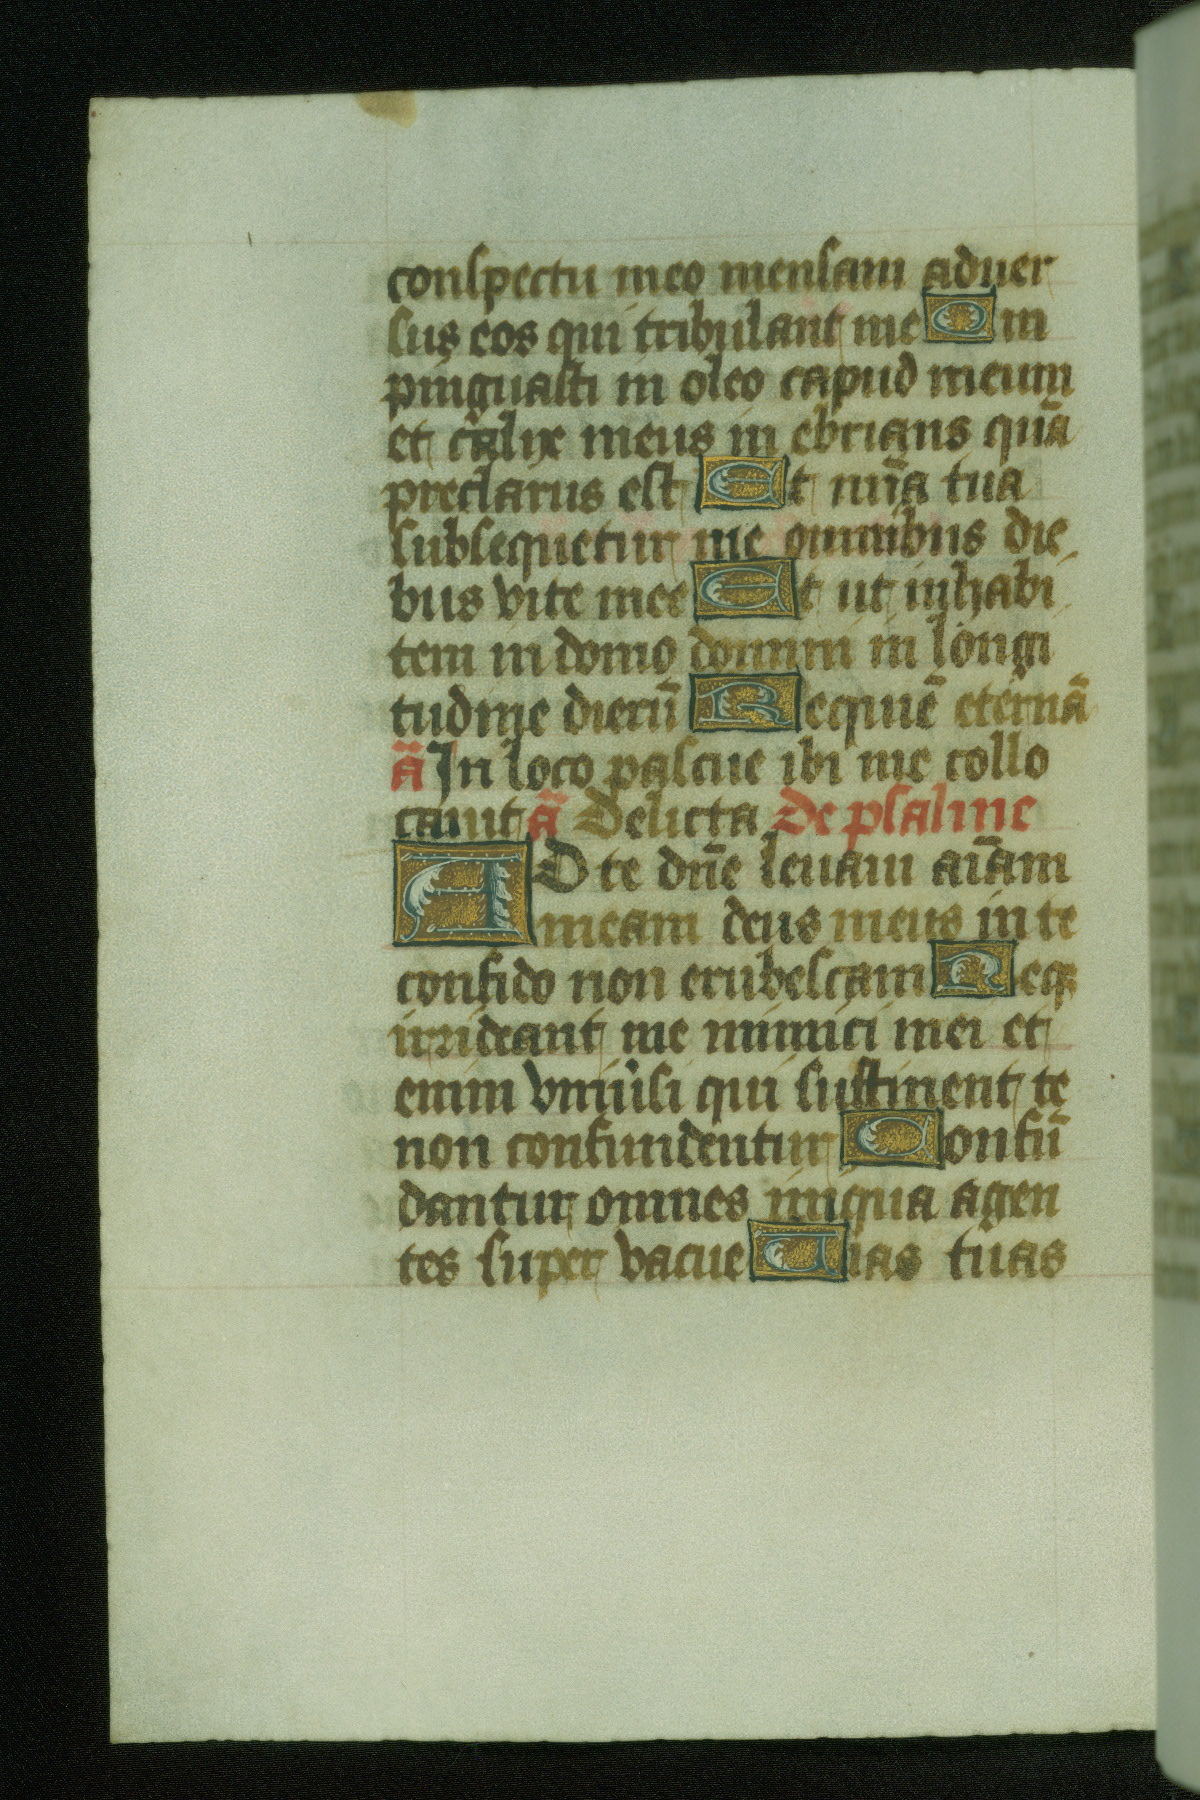 conspectu meo mensam aduer
sus eos qui tribulant me Im
pinguasti in oleo capud meum
et calix meus in ebrians quā
preclarus est Et mīa tua
subsequetur me omnibus die
bus vite mee Et ut inhabi
tem in domo domini in longi
tudine dierū Requiē eternā
ā In loco pascue ibi me collo
cauit ā Delicta De psalme
AD te dn̄e leuaui aīam
meam deus meus in te
confido non erubescam Neqꝫ
irrideant me inimici mei et
enim vniūsi qui sustinent te
non confundentur Confū
dantur omnes iniqua agen
tes super vacue Uias tuas